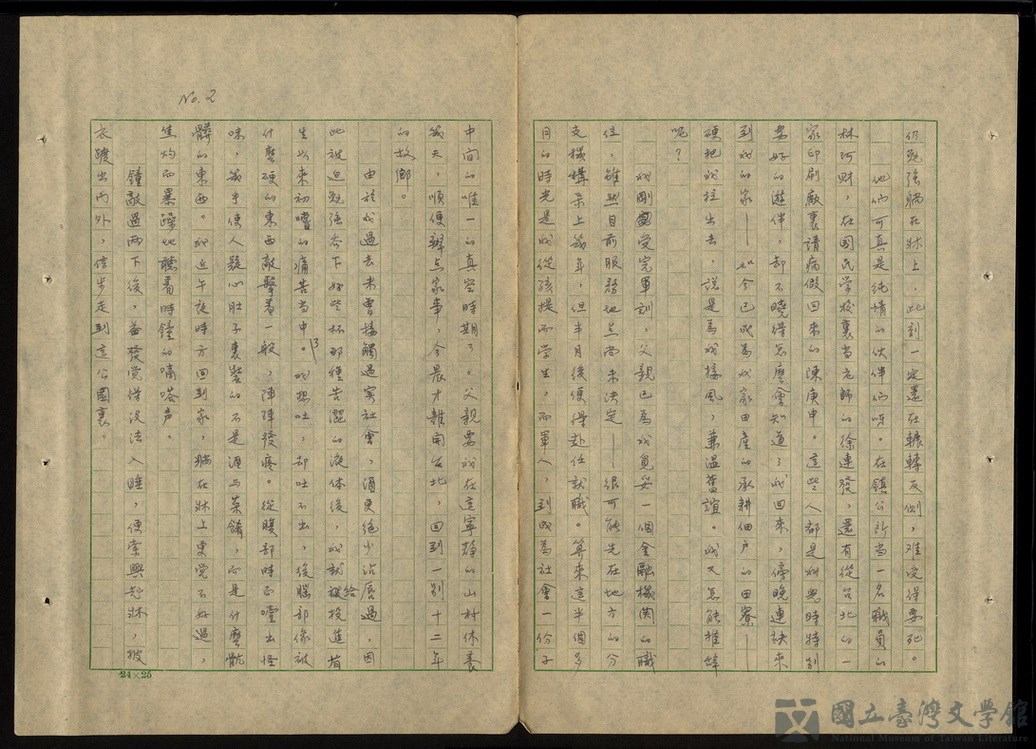 仍勉強躺在牀上,此刻一定還在轗轉反側,難受得要死。
他們可真是純情的伙伴們呀。在鎮公所當一名職員的
林阿財,在國民學校裏當老師的徐連發,還有從台北的一
家印刷廠裏請病假回來的陳庚申。這些人都是
要好的遊伴,卻不曉得怎麼會知道了我回來,傍晚連訣來
到我的家——如今已成為我家田產的承耕佃戶的田寮——
硬把我拉出去,說是為我接風,兼溫舊誼。我又怎能推辭
呢?
我剛受完軍訓,父親已為我覓妥一個金融機関的職
位,雖然目前服務地点尚未決定——很可能先在地方的分
支機構呆上幾年,但半月後便得赴任就職。算來這半個多
月的時光是我從孩提而學生,而軍人,到成為社會一份子
中間的唯一的真空時期了。父親要我在這寧靜的山村休養
幾天,順便辦点家事,今晨才離開台北,回到一別十二年
的故鄉。
由於我過去未曾接觸過實社會,酒更絕少沾唇過,因
此被迫勉強吞下好些杯那種苦澀的液体後,我就給被投進有
生以來初嚐的痛苦當中。我想吐,却吐不出,後腦部像被
什麼硬的東西敲擊着一般,陣陣發疼。從腹部時而噎出怪
味,幾乎使人疑心肚子裏裝的不是酒与菜餚,而是什麼骯
髒的東西。我近午夜時方回到家,躺在牀上更覺不好過,
焦灼而暴躁地聽着時鐘的嘀嗒声。
鐘敲過兩下後,益發覺得沒法入睡,便索興起牀,披
衣踱出門外,信步走到這公園裏。
No. 2
24×25
國立臺灣文學館
National Museum of Taiwan Literature